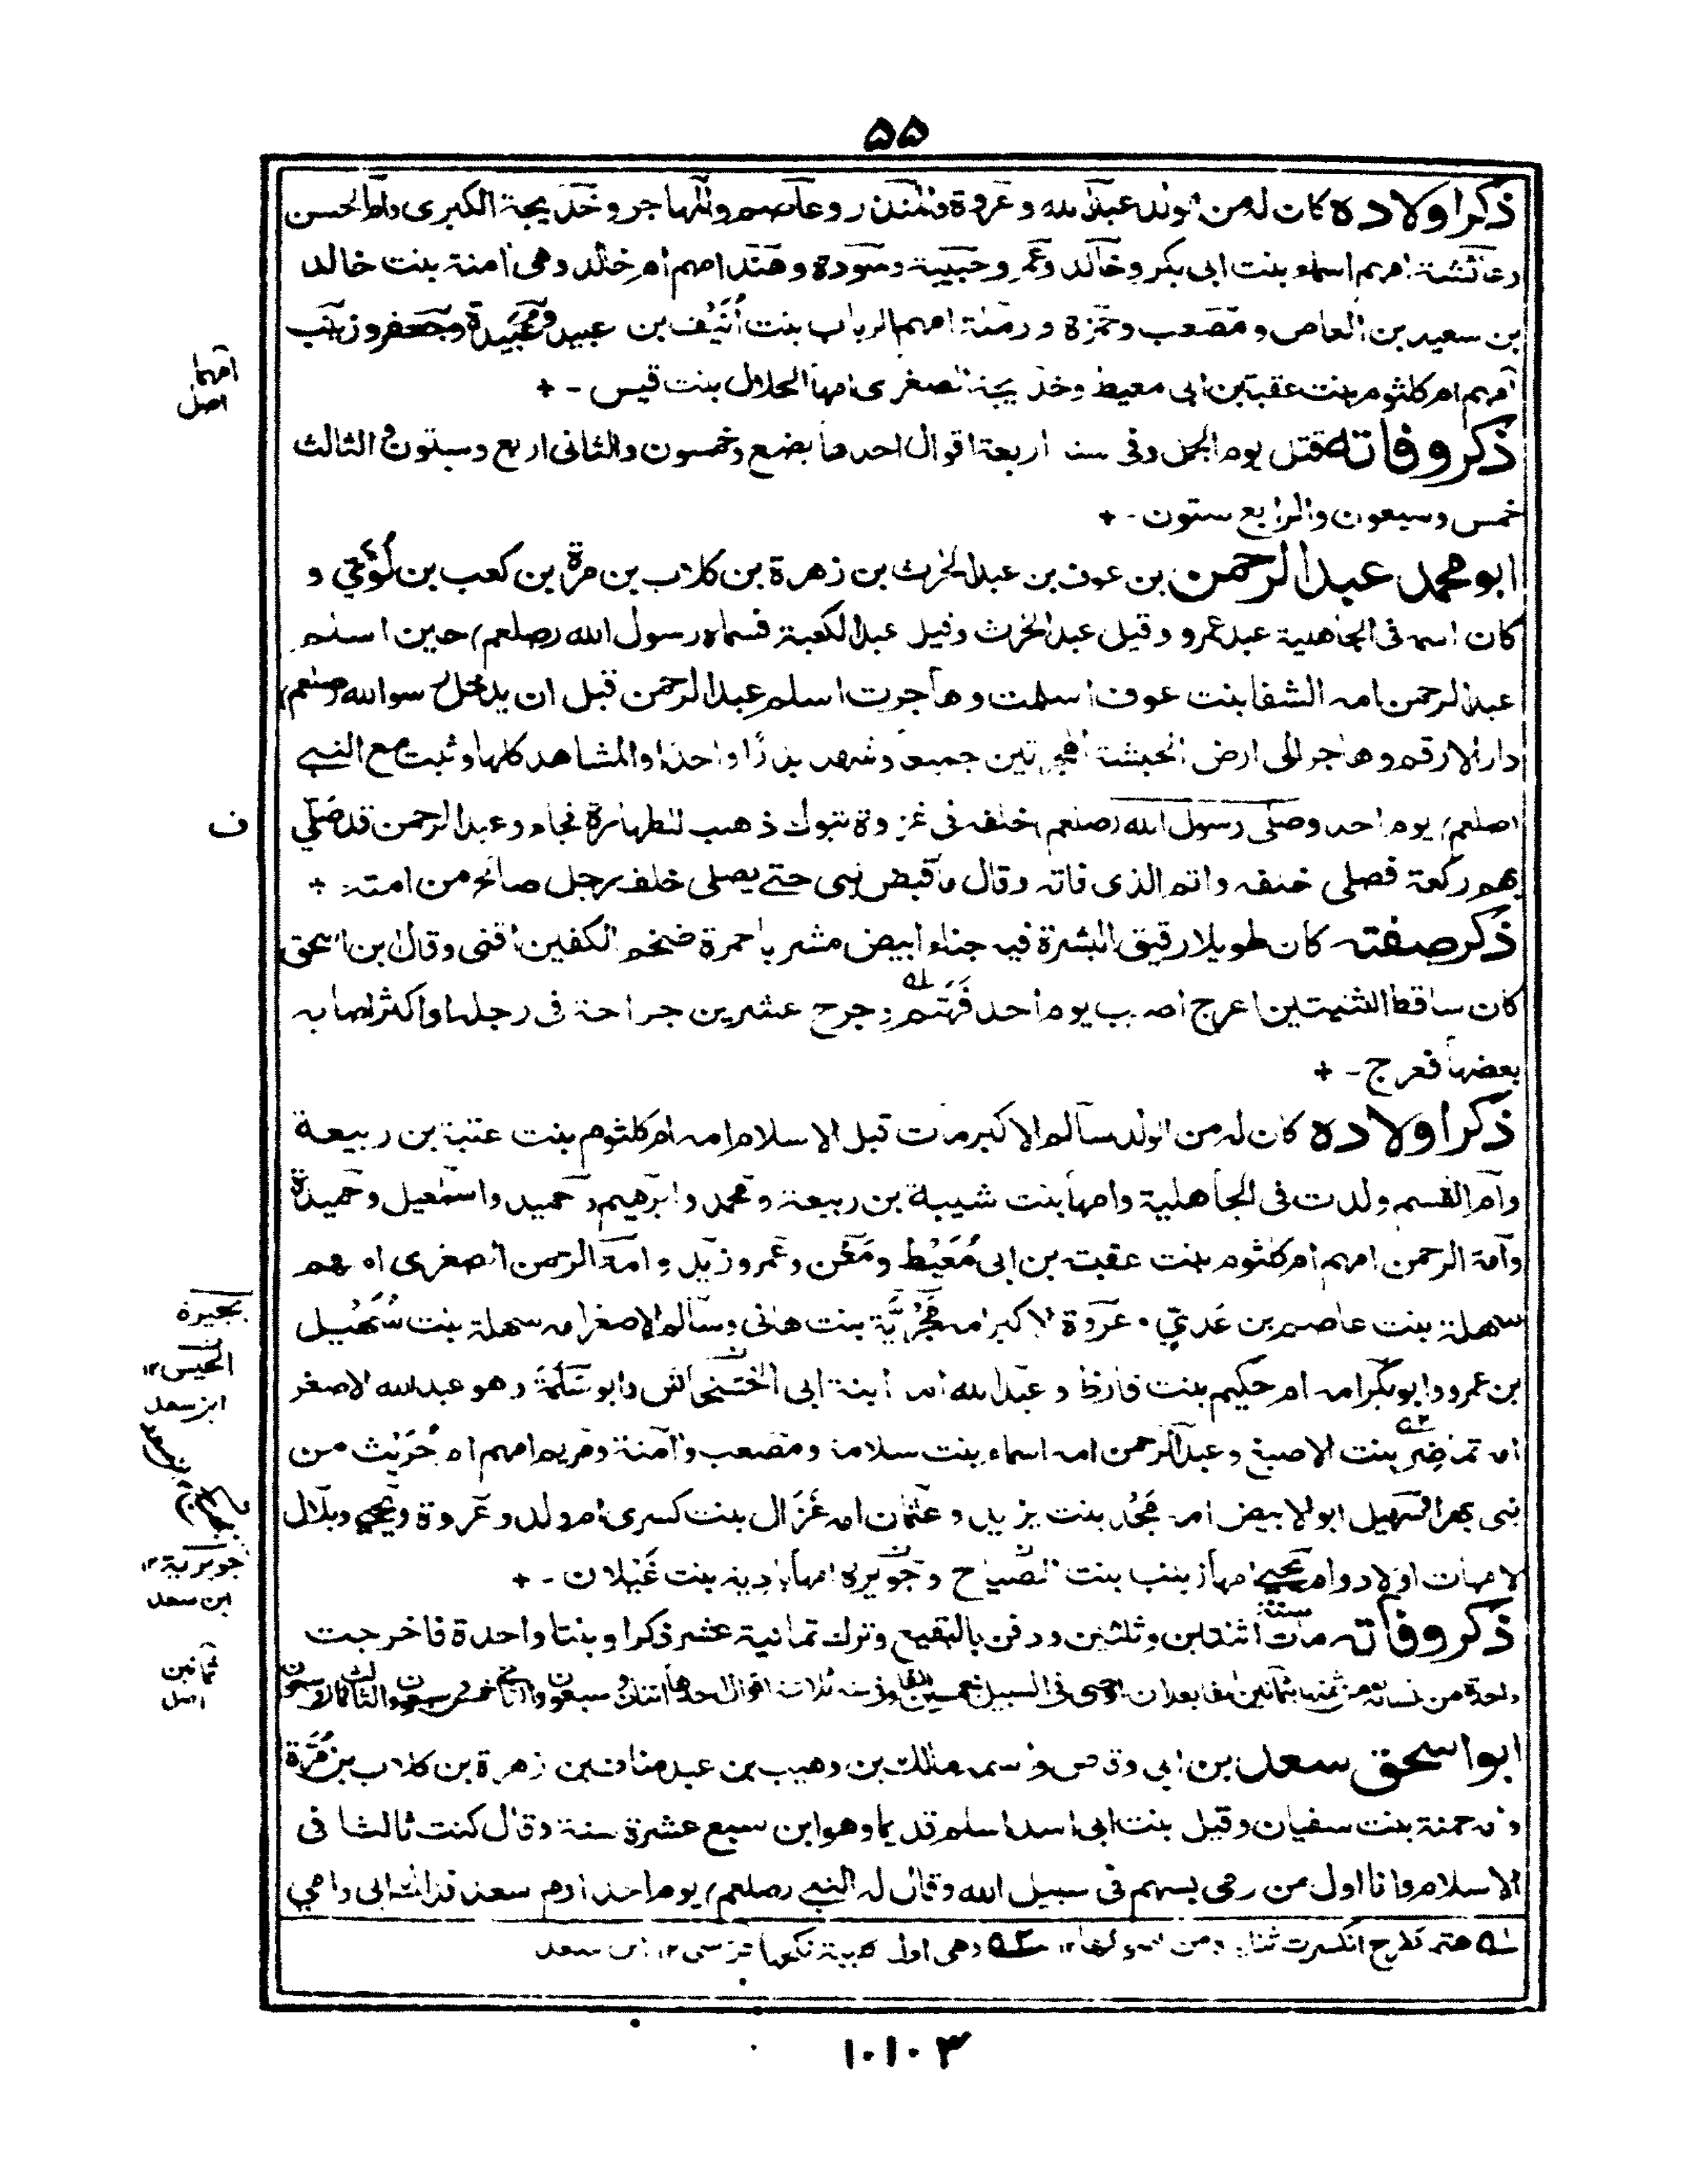 ۵۵
ذكر اولاده كان له من الولد عبد الله وعروة والمنذر وعاصم والمهاجر وخديجة الكبرى وام الحسن
وعائشة امهم اسماء بنت ابى بكر وخالد وعمرو حبيبة وسودة وهند امهم ام خالد وهى امنة بنت خالد
بن سعيد بن العاص ومصعب وحمزة ورملة امهم الرباب بنت أُنَيْف بن عبيد وعبيدة وجعفر وزينب
امهم ام كلثوم بنت عقبة بن ابى معيط وخديجة الصغرى امها الحلال بنت قيس - +
امهما
اصل
ذكر وفاته قتل يوم الجمل وفى سنه اربعة اقوال احدها بضع وخمسون والثانى اربع وستون والثالث
خمس وسبعون والرابع ستون - +
ابو محمد عبد الرحمن بن عوف بن عبد الحرث بن زهرة بن كلاب بن مرة بن كعب بن لُؤَيّ و
كان اسمه فى الجاهلية عبد عمرو وقيل عبد الحرث وقيل عبد الكعبة فسماه رسول الله (صلعم) حين اسلم
عبد الرحمن امه الشفا بنت عوف اسلمت وهاجرت اسلم عبد الرحمن قبل ان يدخل رسو الله (صلعم)
دار الارقم وهاجر الى ارض الحبشة الهجرتين جميعا وشهد بدرًا واحدا والمشاهد كلها وثبت مع النبي
(صلعم) يوم احد وصلى رسول الله (صلعم) خلفه فى غزوة تبوك ذهب للطهارة فجاء وعبد الرحمن قد صلّي
ف
بهم ركعة فصلى خلفه واتم الذى فاته وقال ما قبض نبى حتے يصلى خلف رجل صالح من امته +
ذكر صفته كان طويلا رقيق البشرة فيه جناء ابيض مشربا حمرة ضخم الكفين اقنى وقال ابن اسحق
كان ساقط الثنيتين اعرج اصيب يوم احد فَهَتَم ۱؎ وجرح عشرين جراحة فى رجله او اكثر اصابه
بعضها فعرج - +
ذكر اولاده كان له من الولد سالم الاكبر مات قبل الاسلام امه ام كلثوم بنت عتبة بن ربيعة
وام القسم ولدت فى الجاهلية وامها بنت شيبة بن ربيعة ومحمد وابرهيم وحميد واسمعيل وحميدة
وامة الرحمن امهم ام كلثوم بنت عقبة بن ابى مُعَيْط ومَعْن وعمرو زيد وامة الرحمن الصغرى امهم
سهلة بنت عاصم بن عَديّ وعروة الاكبر امه بنت هانى وسالم الاصغر امه سهلة بنت سُهَيْل
بحيرة
بن عمرو وابو بكر امه ام حكيم بنت قارظ و عبد الله امه ابنة ابى وابو سَلَمَة وهو عبد الله الاصغر
الحيس ۱۲
ابن سعد
امه تماضِر ۲؎ بنت الاصبغ وعبد الرحمن امه اسماء بنت سلامة ومصعب وآمنة ومريم امهم ام حُرَيْث من
بنى بهرا السهيل ابو الابيض امه مَجْد بنت يزيد وعثمان امه غَزَال بنت كسرى ام ولد وعروة ويحيي وبلال
لامهات اولاد وام يحيے امها زينب بنت الصبّاح وجويرة امها بادية بنت غَيْلان - +
جويرية ۱۲
ابن سعد
ذكر وفاته مات سنة اثنتين وثلثين ودفن بالبقيع وترك ثمانية عشر ذكرا وبنتا واحدة فاخرجت
واحدة من نسائه من ثمنها بثمانين الفا بعد ان اوصى فى السبيل بخمسين الفا وفى سنه ثلاثة اقوال احدها اثنان وسبعون والثانى خمس وسبعون والثالث ثمان وسبعون
ثمانين
اصل
ابو اسحق سعد بن ابى وقاص واسمه مالك بن وهيب بن عبد مناف بن زهرة بن كلاب بن مُرَّة
وامه حمنة بنت سفيان وقيل بنت ابى اسد اسلم قديما وهو ابن سبع عشرة سنة وقال كنت ثالثا فى
الاسلام وانا اول من رمى بسهم فى سبيل الله وقال له النبي (صلعم) يوم احد ارم سعد فداك ابى وامي
۱؎ هتم كفرح انكسرت ثناياه من اصولها ۱۲ ۲؎ وهى اول كلبية نكحها قرشى ۱۲ ابن سعد
۱۰۱۰۳